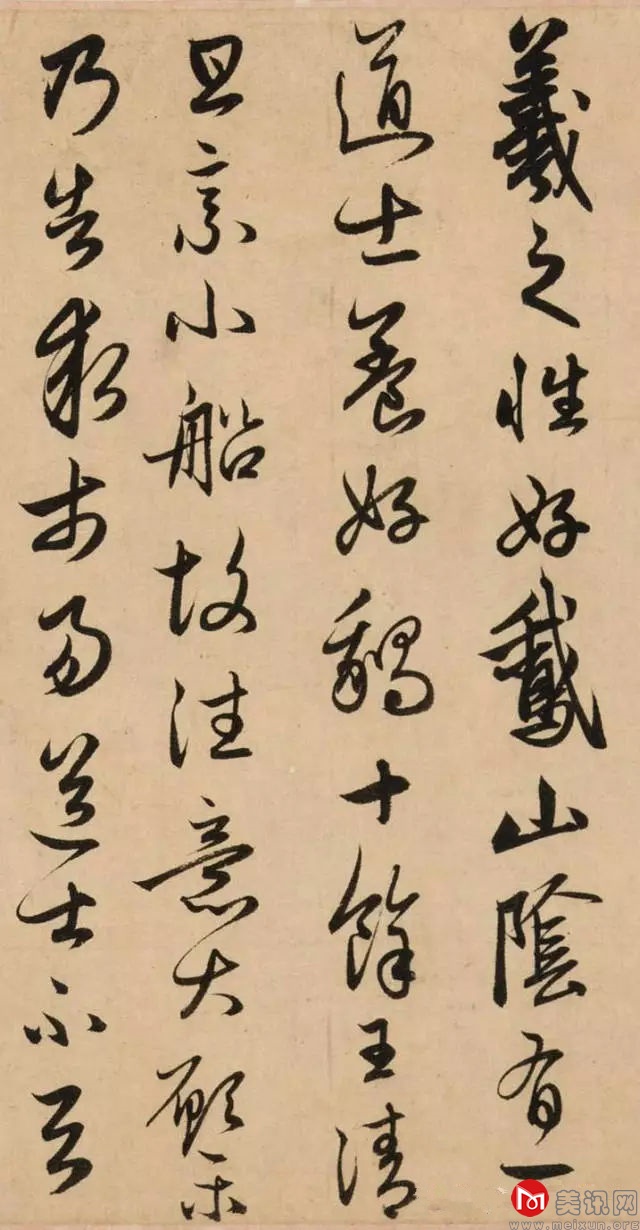 羲之性好鵞山陰有一
道士養好鵝十餘王清
旦乘小船故往意大願樂
乃告求市易道士不与
美讯网
www.meixun.org